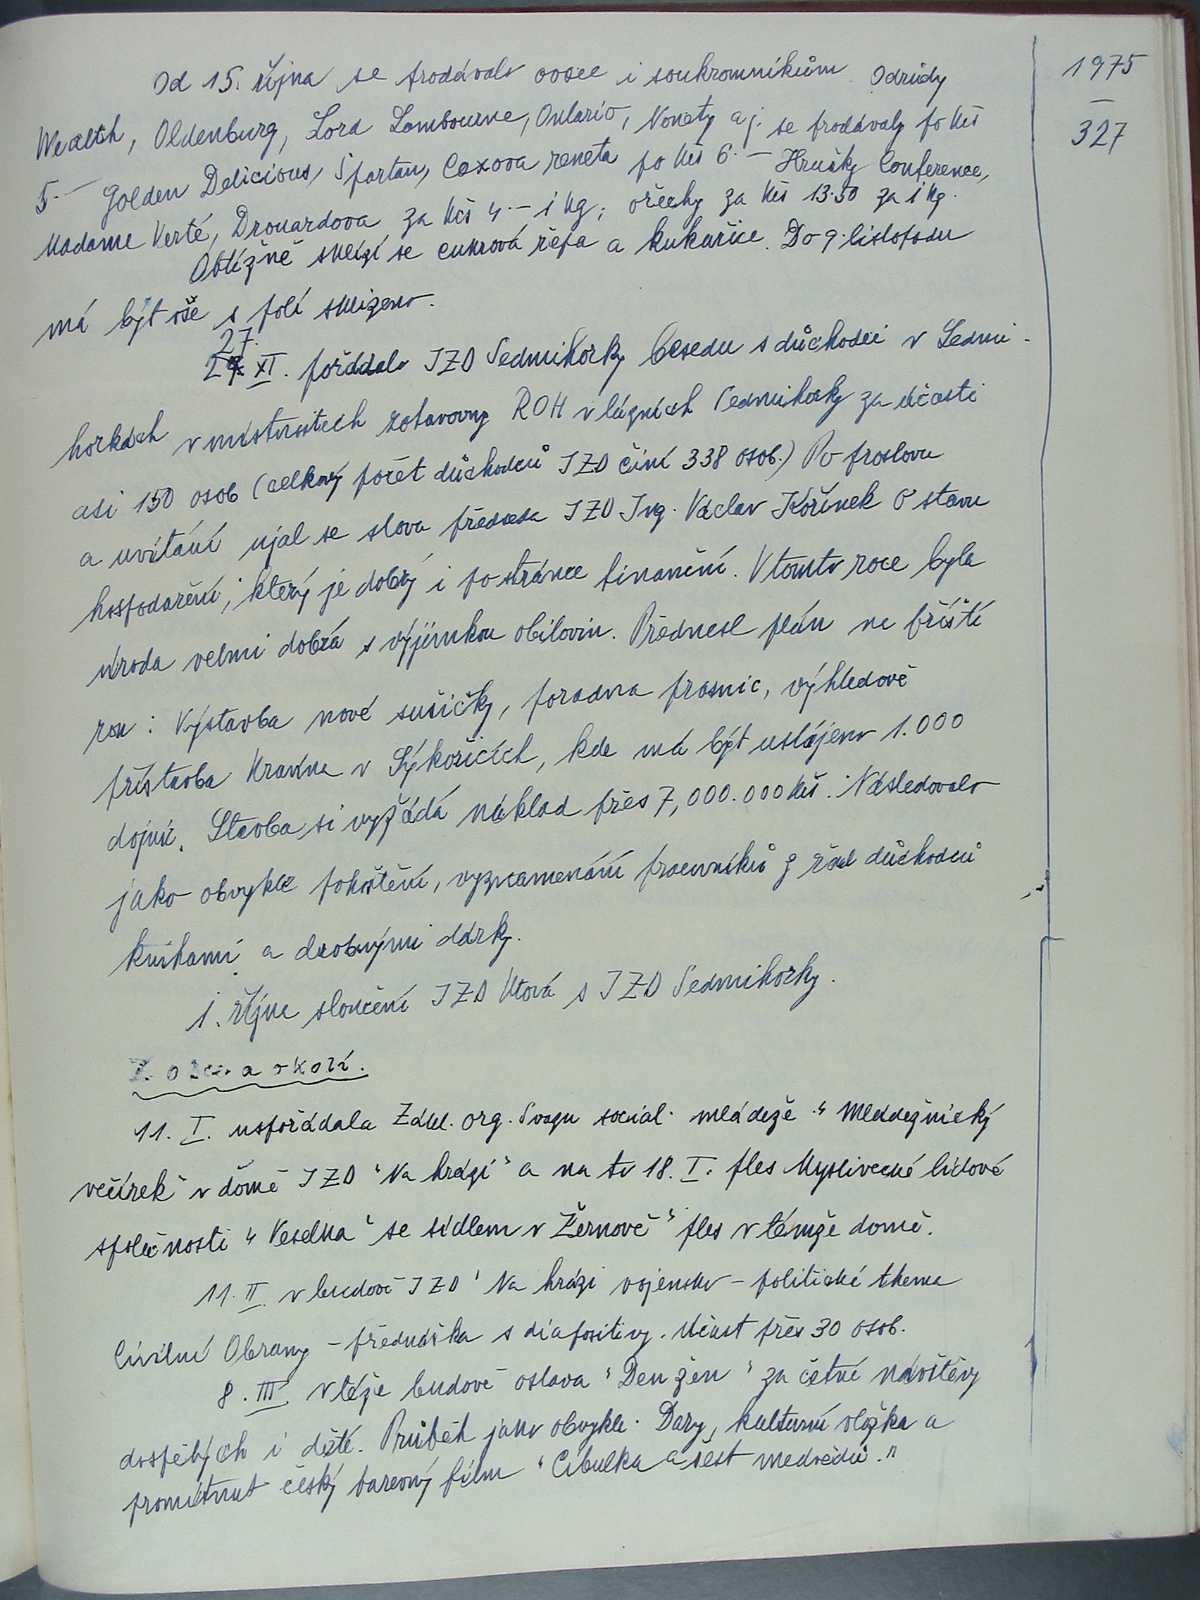 1975
—
327
Od 15. října se prodávalo ovoce i soukromníkům. Odrůdy
Wealth, Oldenburg, Lord Lambourne, Ontario, Nonety aj. se prodávaly po Kčs
5.— Golden Delicious, Spartan, Coxova reneta po Kčs 6.— Hrušky Conference,
Madame Verté, Drouardova za Kčs 4.— 1 kg; ořechy za Kčs 13.50 za 1 kg.
Obtížně sklízí se cukrová řepa a kukuřice. Do 9. listopadu
má být vše s polí sklizeno.
27. XI. pořádalo JZD Sedmihorky besedu s důchodci v Sedmi-
horkách v místnostech zotavovny ROH v lázních Sedmihorky za účasti
asi 150 osob (celkový počet důchodců JZD činí 338 osob.) Po proslovu
a uvítání ujal se slova předseda JZD Ing. Václav Kořínek o stavu
hospodaření, který je dobrý i po stránce finanční. V tomto roce byla
úroda velmi dobrá s výjimkou obilovin. Přednesl plán na příští
rok: Výstavba nové sušičky, poradna prasnic, výhledově
přístavba kravína v Sýkořicích, kde má být ustájeno 1.000
dojnic. Stavba si vyžádá náklad přes 7,000.000 Kčs. Následovalo
jako obvykle pohoštění, vyznamenání pracovníků z řad důchodců
knihami a drobnými dárky.
1. října sloučení JZD Ktová s JZD Sedmihorky.
Z obce a okolí.
11. I. uspořádala Zákl. org. Svazu social. mládeže "Mládežnický
večírek" v domě JZD "Na hrázi" a na to 18. I. ples Myslivecké lidové
společnosti "Veselka" se sídlem v Žernově" ples v témže domě.
11. II. v budově JZD "Na hrázi vojensko-politické thema
Civilní Obrany – přednáška s diapositivy. Účast přes 30 osob.
8. III. v téže budově oslava "Den žen" za četné návštěvy
dospělých i dětí. Průběh jako obvykle. Dary, kulturní vložka a
promítnut český barevný film "Cibulka a šest medvědů."